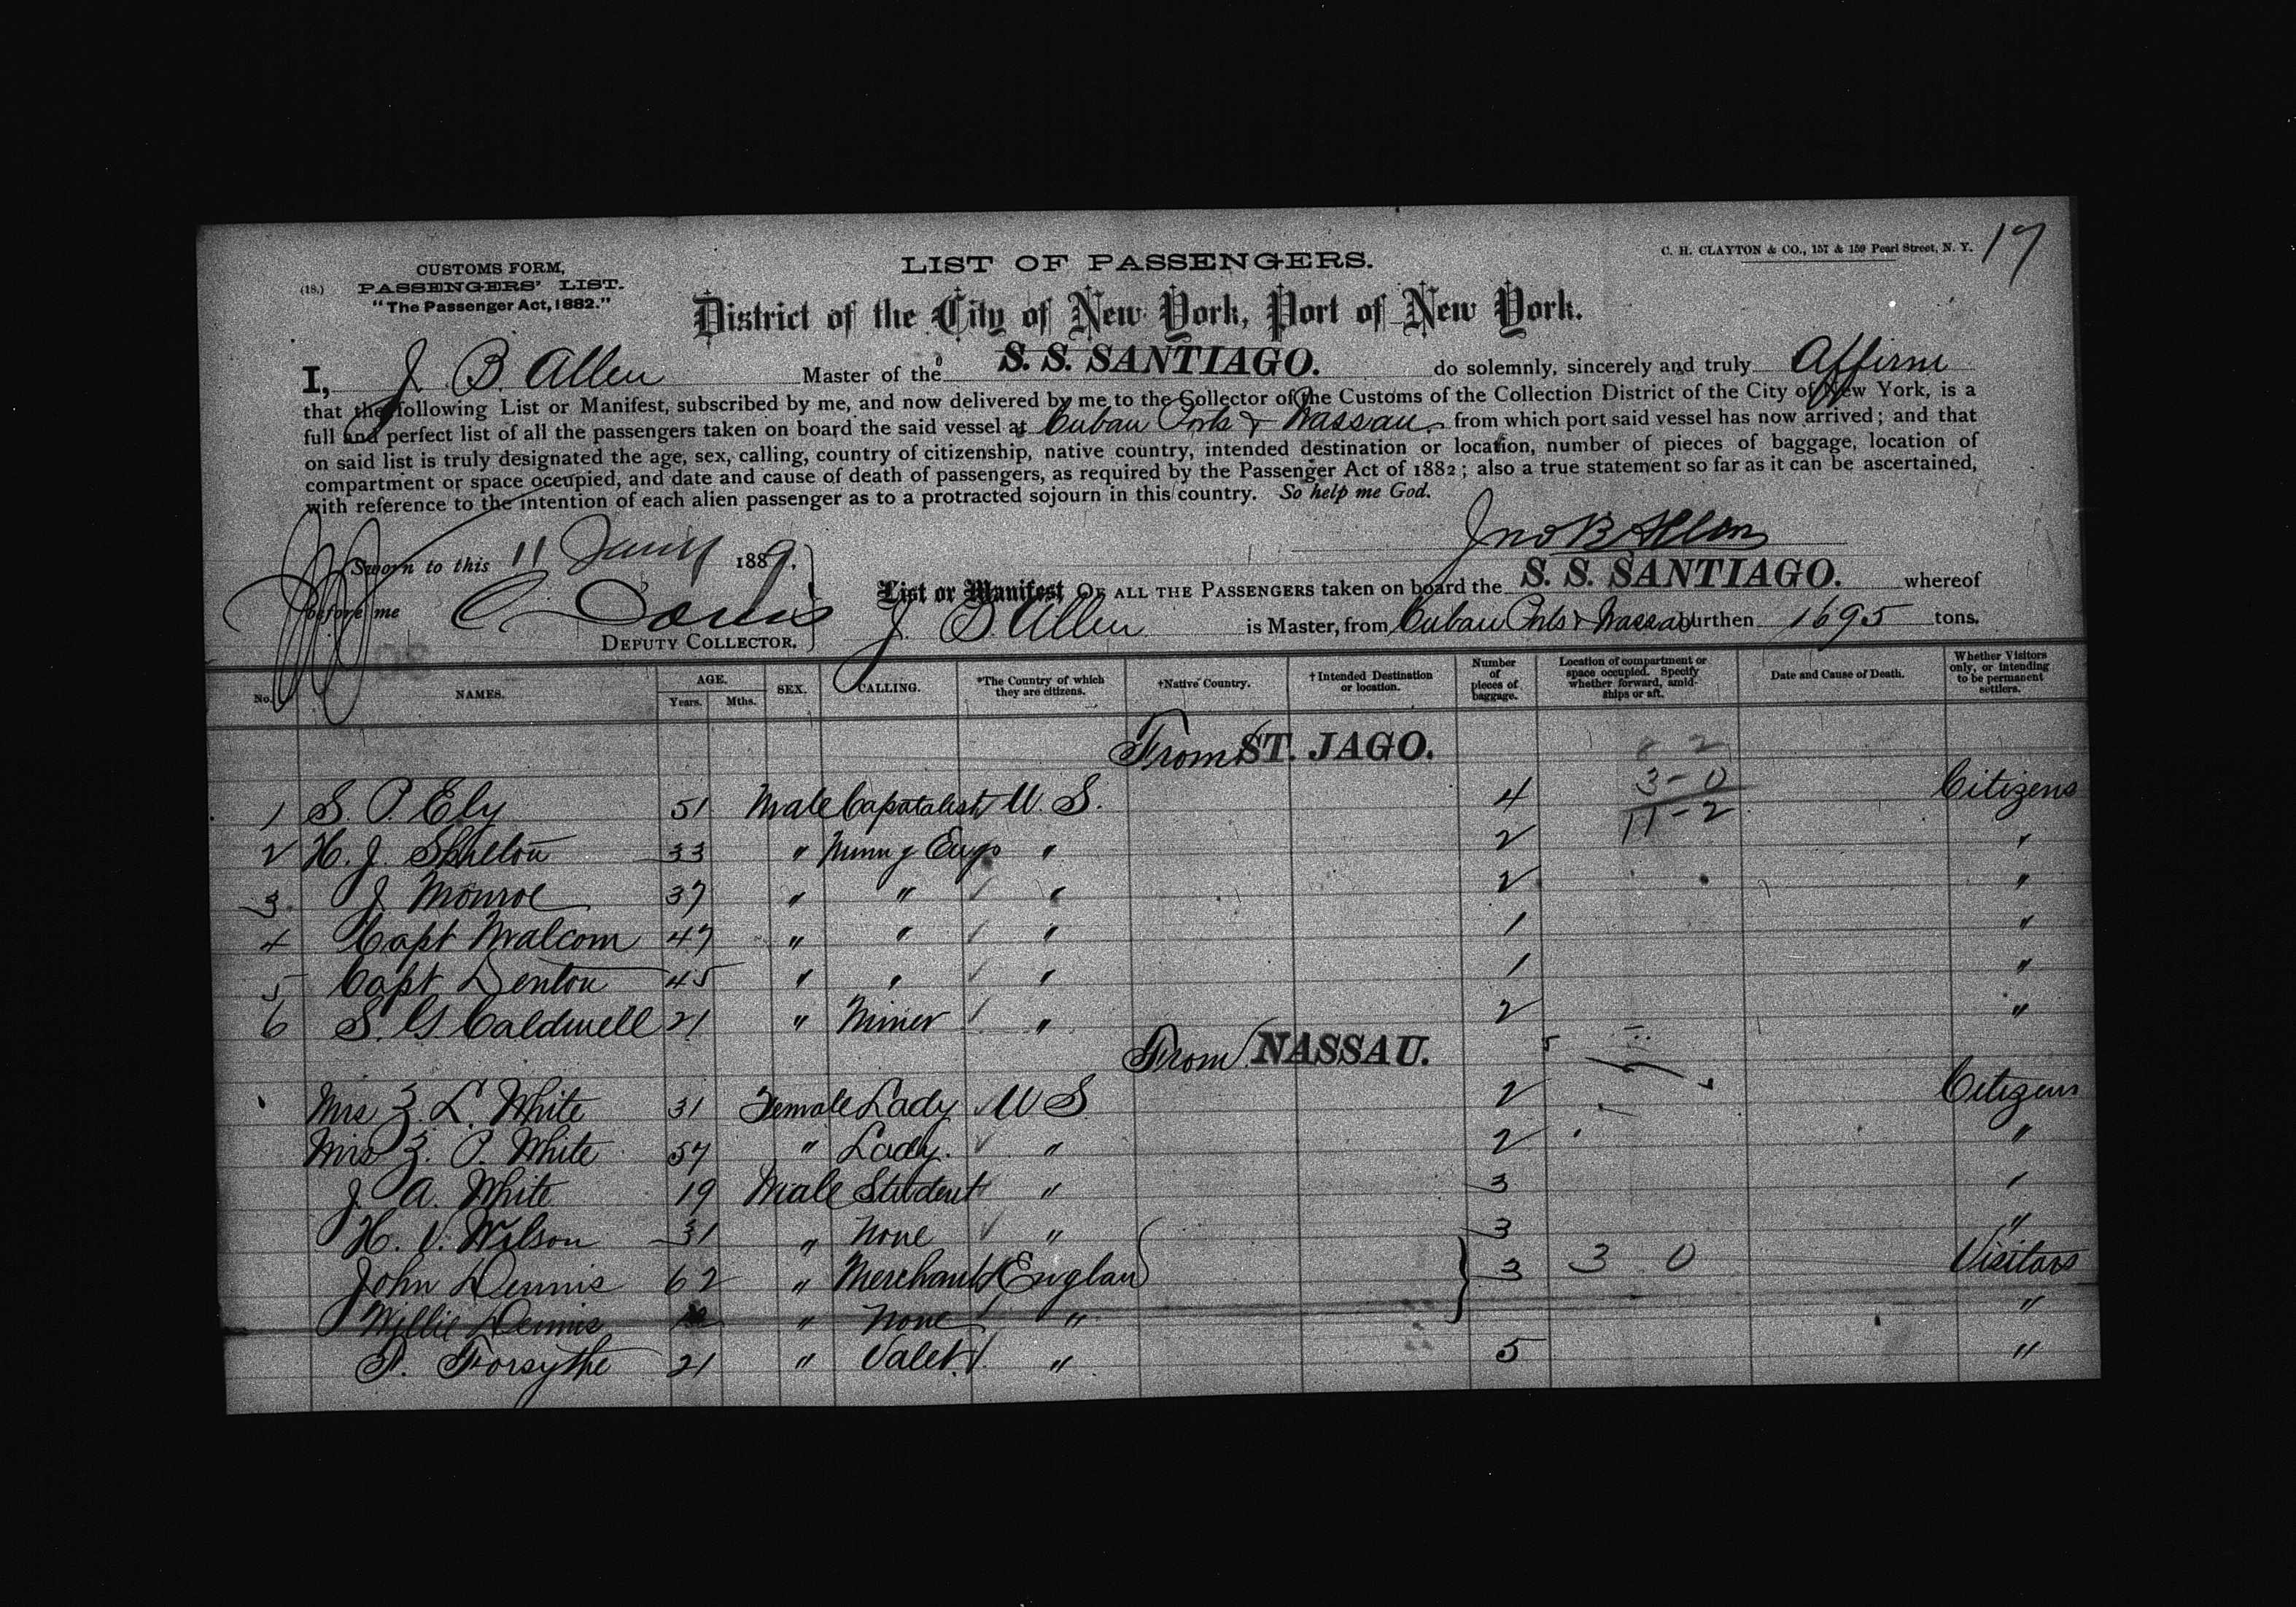 C. H. CLAYTON & CO., 157 & 159 Pearl Street, N. Y. 17
LIST OF PASSENGERS.
(18.) CUSTOMS FORM,
PASSENGERS' LIST.
"The Passenger Act, 1882."
District of the City of New York, Port of New York.
I, J. B. Allen Master of the S. S. SANTIAGO. do solemnly, sincerely and truly Affirm
that the following List or Manifest, subscribed by me, and now delivered by me to the Collector of the Customs of the Collection District of the City of New York, is a
full and perfect list of all the passengers taken on board the said vessel at Cuban Ports & Nassau from which port said vessel has now arrived; and that
on said list is truly designated the age, sex, calling, country of citizenship, native country, intended destination or location, number of pieces of baggage, location of
compartment or space occupied, and date and cause of death of passengers, as required by the Passenger Act of 1882; also a true statement so far as it can be ascertained,
with reference to the intention of each alien passenger as to a protracted sojourn in this country. So help me God.
Jno B Allen
Sworn to this 11 1889.
before me
DEPUTY COLLECTOR.
List or Manifest OF ALL THE PASSENGERS taken on board the S. S. SANTIAGO. whereof
J. B. Allen is Master, from Cuban Ports & Nassau burthen 1695 tons.
No. NAMES. AGE. Years. Mths. SEX. CALLING. *The Country of which they are citizens. †Native Country. †Intended Destination or location. Number of pieces of baggage. Location of compartment or space occupied. Specify whether forward, amidships or aft. Date and Cause of Death. Whether Visitors only, or intending to be permanent settlers.
From ST. JAGO.
8 2
3-0
11-2
1 S. P. Ely 51 Male Capatalist U. S. 4 Citizens
2 H. J. Shelton 33 " Minng Engs " 2 "
3 J Monroe 37 " " " 2 "
4 Capt Malcom 47 " " " 1 "
5 Capt Denton 45 " " " 1 "
6 S. G Caldwell 21 " Miner " 2 "
From NASSAU.
Mrs Z. L. White 31 Female Lady U S 2 Citizens
Mrs Z. P. White 57 " Lady. " 2 "
J. A. White 19 Male Student " 3 "
H. V. Wilson 31 " None " 3 "
John Dennis 62 " Merchant England 3 3 0 Visitors
Willie Dennis " None " "
P. Forsythe 21 " Valet " 5 "